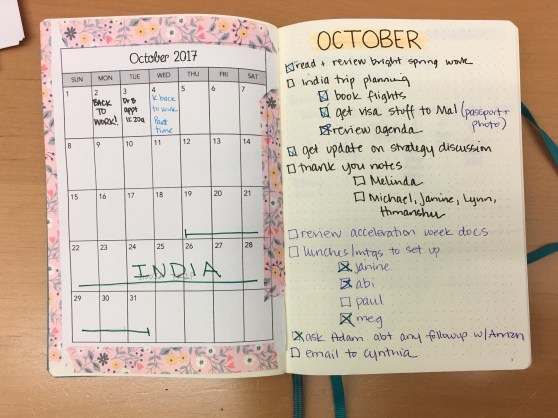 October 2017
SUN MON TUE WED THU FRI SAT
1 2 3 4 5 6 7
BACK
TO
WORK!
Dr B
appt
K back
to work
Part
time
8 9 10 11 12 13 14
15 16 17 18 19 20 21
22 23 24 25 26 27 28
INDIA
29 30 31
OCTOBER
read + review bright spring work
india trip planning
book flights
get visa stuff to Mal (passport +
photo)
review agenda
get update on strategy discussion
thank you notes
Melinda
Michael, Janine, Lynn,
Himanshu
review acceleration week docs
lunches/mtgs to set up
janine
abi
paul
meg
ask Adam abt any followup w/
email to cynthia